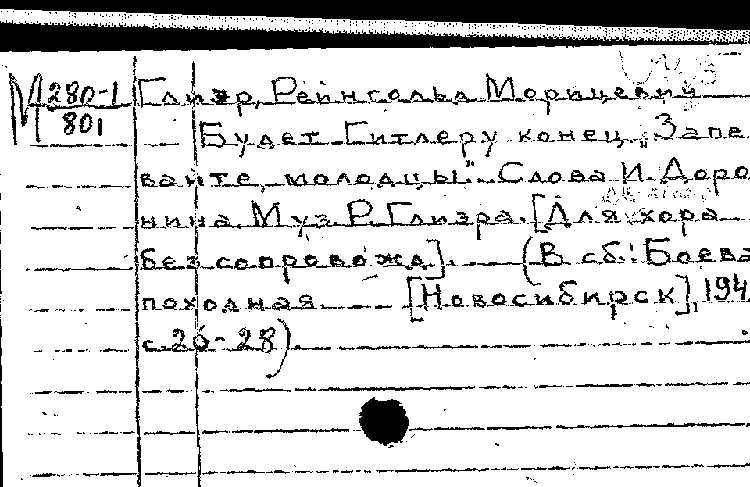 М 280-1/801
Глиэр, Рейнгольд Морицевич
Будет Гитлеру конец. „Запе
вайте, молодцы". Слова И. Доро
нина. Муз. Р. Глиэра. [Для хора
без сопровожд]. — (В сб.: Боева
походная. — [Новосибирск], 194
с. 26-28).